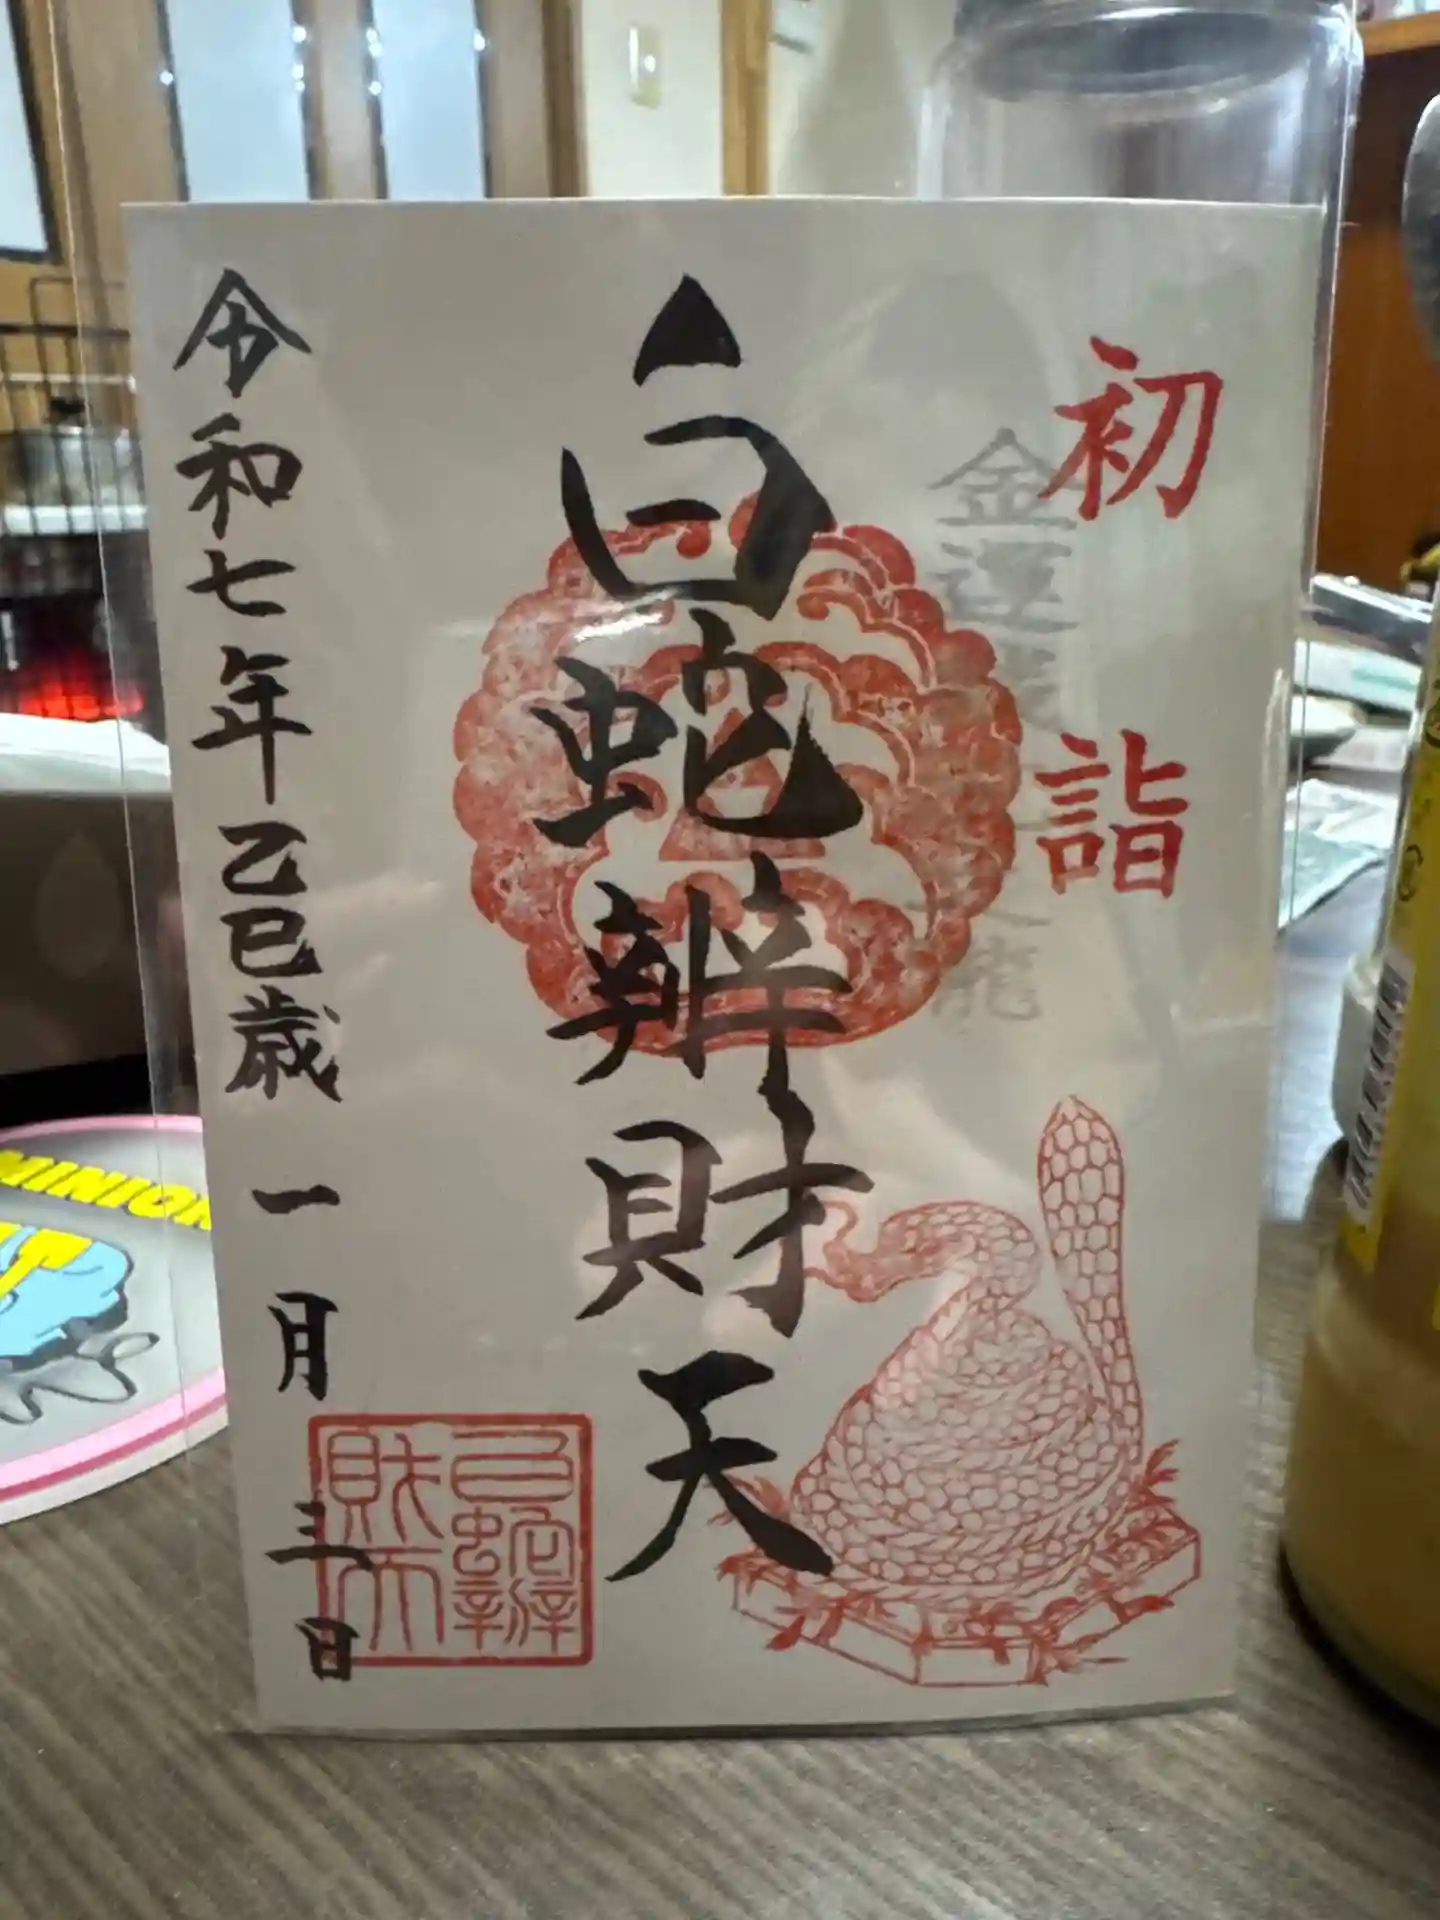 初詣
白蛇辨財天
令和七年乙巳歳 一月 三日
白蛇辨
財天
MINION